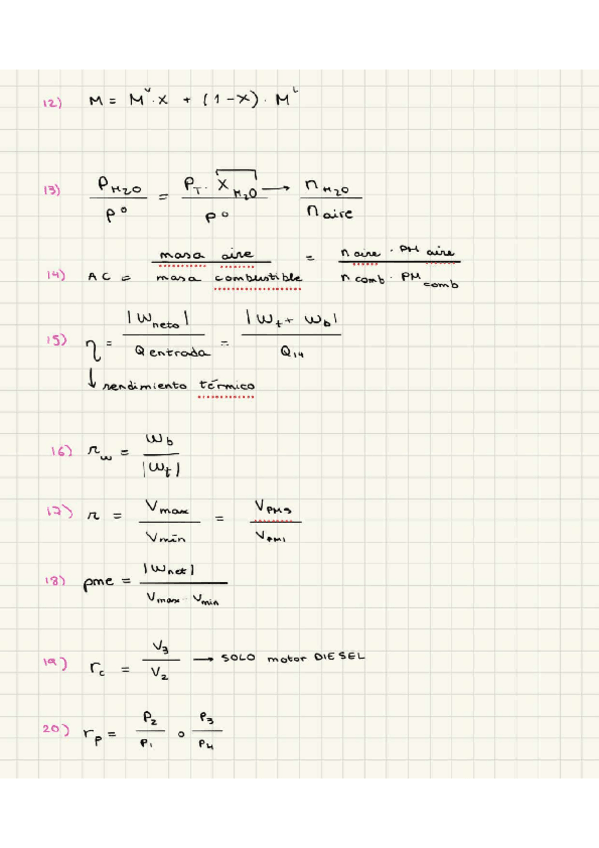 12) M = Mᵛ·X + (1-X)·Mᴸ
13) P_H2O / p° = P_T · X_H2O / p° → n_H2O / n aire
14) AC = masa aire / masa combustible = n aire · PM aire / n comb · PM comb
15) η = |W neto| / Q entrada = |W_t + W_b| / Q_14
↓ rendimiento térmico
16) r_w = W_b / |W_t|
17) r = V max / V mín = V_PMS / V_PMI
18) pme = |W net| / V max - V min
19) r_c = V_3 / V_2 → SOLO motor DIESEL
20) r_p = P_2 / P_1 o P_3 / P_4